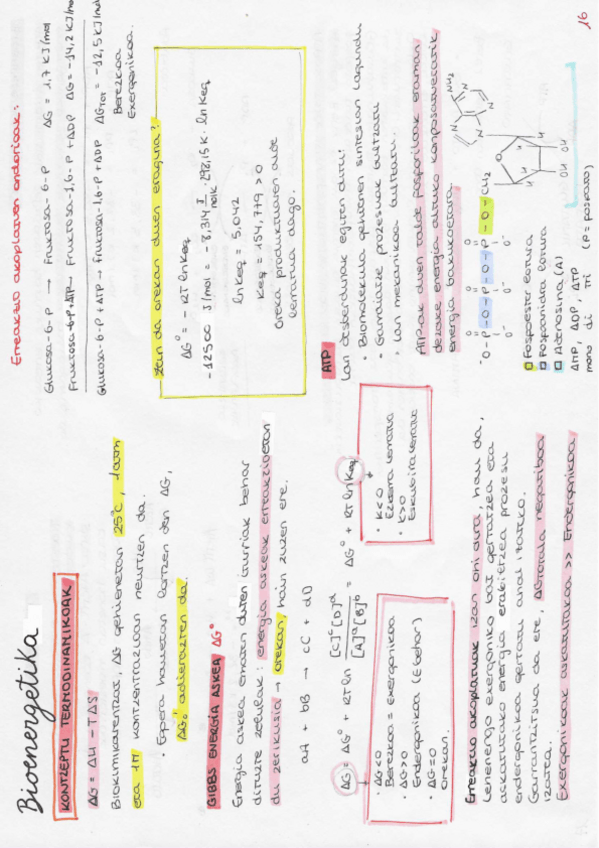 Bioenergetika
KONTZEPTU TERMODINAMIKOAK
ΔG = ΔH - TΔS
Biokimikarentzat, ΔG gehienetan 25°C, 1atm
eta 1M kontzentrazioan neurtzen da.
· Egoera hauetan lortzen den ΔG,
ΔG°' adierazten da.
GIBBS ENERGIA ASKEA ΔG°
Energia askea ematen duten
dituzte zelulak: energia askeak erreakzioetan
du zerikusia → orekan, hain zuzen ere.
aA + bB → cC + dD
ΔG = ΔG° + RT ln [C]^c [D]^d / [A]^a [B]^b = ΔG° + RT ln Keq
· ΔG<0
Berezkoa = exergonikoa
· ΔG>0
Endergonikoa (E behar)
· ΔG=0
Orekan.
· K<0
Ezkerra lerratua
· K>0
Eskubira lerratua
Erreakzio akoplatuak izan ohi dira, hau da,
Lehenengo exergoniko bat gertatzea eta
askatutako energia erabiltzea prozesu
endergonikoa gertatu ahal izateko.
Garrantzitsua da ere, ΔGtotala negatiboa
izatea.
Exergonikoak askatutakoa >> Endergonikoa
Erreakzio akoplatuen ondorioak:
Glukosa-6-P → Fruktosa-6-P ΔG = 1,7 KJ/mol
Fruktosa-6-P + ATP → Fruktosa-1,6-P + ADP ΔG = -14,2 KJ/mol
Glukosa-6-P + ATP → Fruktosa-1,6-P + ADP ΔGTOT = -12,5 KJ/mol
Berezkoa
Exergonikoa.
Zein da orekan duen eragina?
ΔG°' = - RT ln Keq
-12500 J/mol = -8,314 J/molK · 298,15K · ln Keq
ln Keq = 5,042
Keq = 154,779 > 0
Oreka produktuen alde
lerratua dago.
ATP
Lan desberdinak egiten ditu:
· Biomolekula gehienen sintesian lagundu
· Garraiatze prozesuak bultzatu
· Lan mekanikoa bultzatu.
ATP-ak duen talde fosforiloak eraman
dezake energia altuko konposatuetatik
energia baxukoetara.
⁻O-P-O-P-O-P-O-CH₂
O O O
O⁻ O⁻ O⁻
NH₂
N N N N
O
H H H H
OH OH
Fosfoester lotura
Fosfoanhidro lotura
Adenosina (A)
AMP, ADP, ATP
mono di tri (P = fosfato)
16